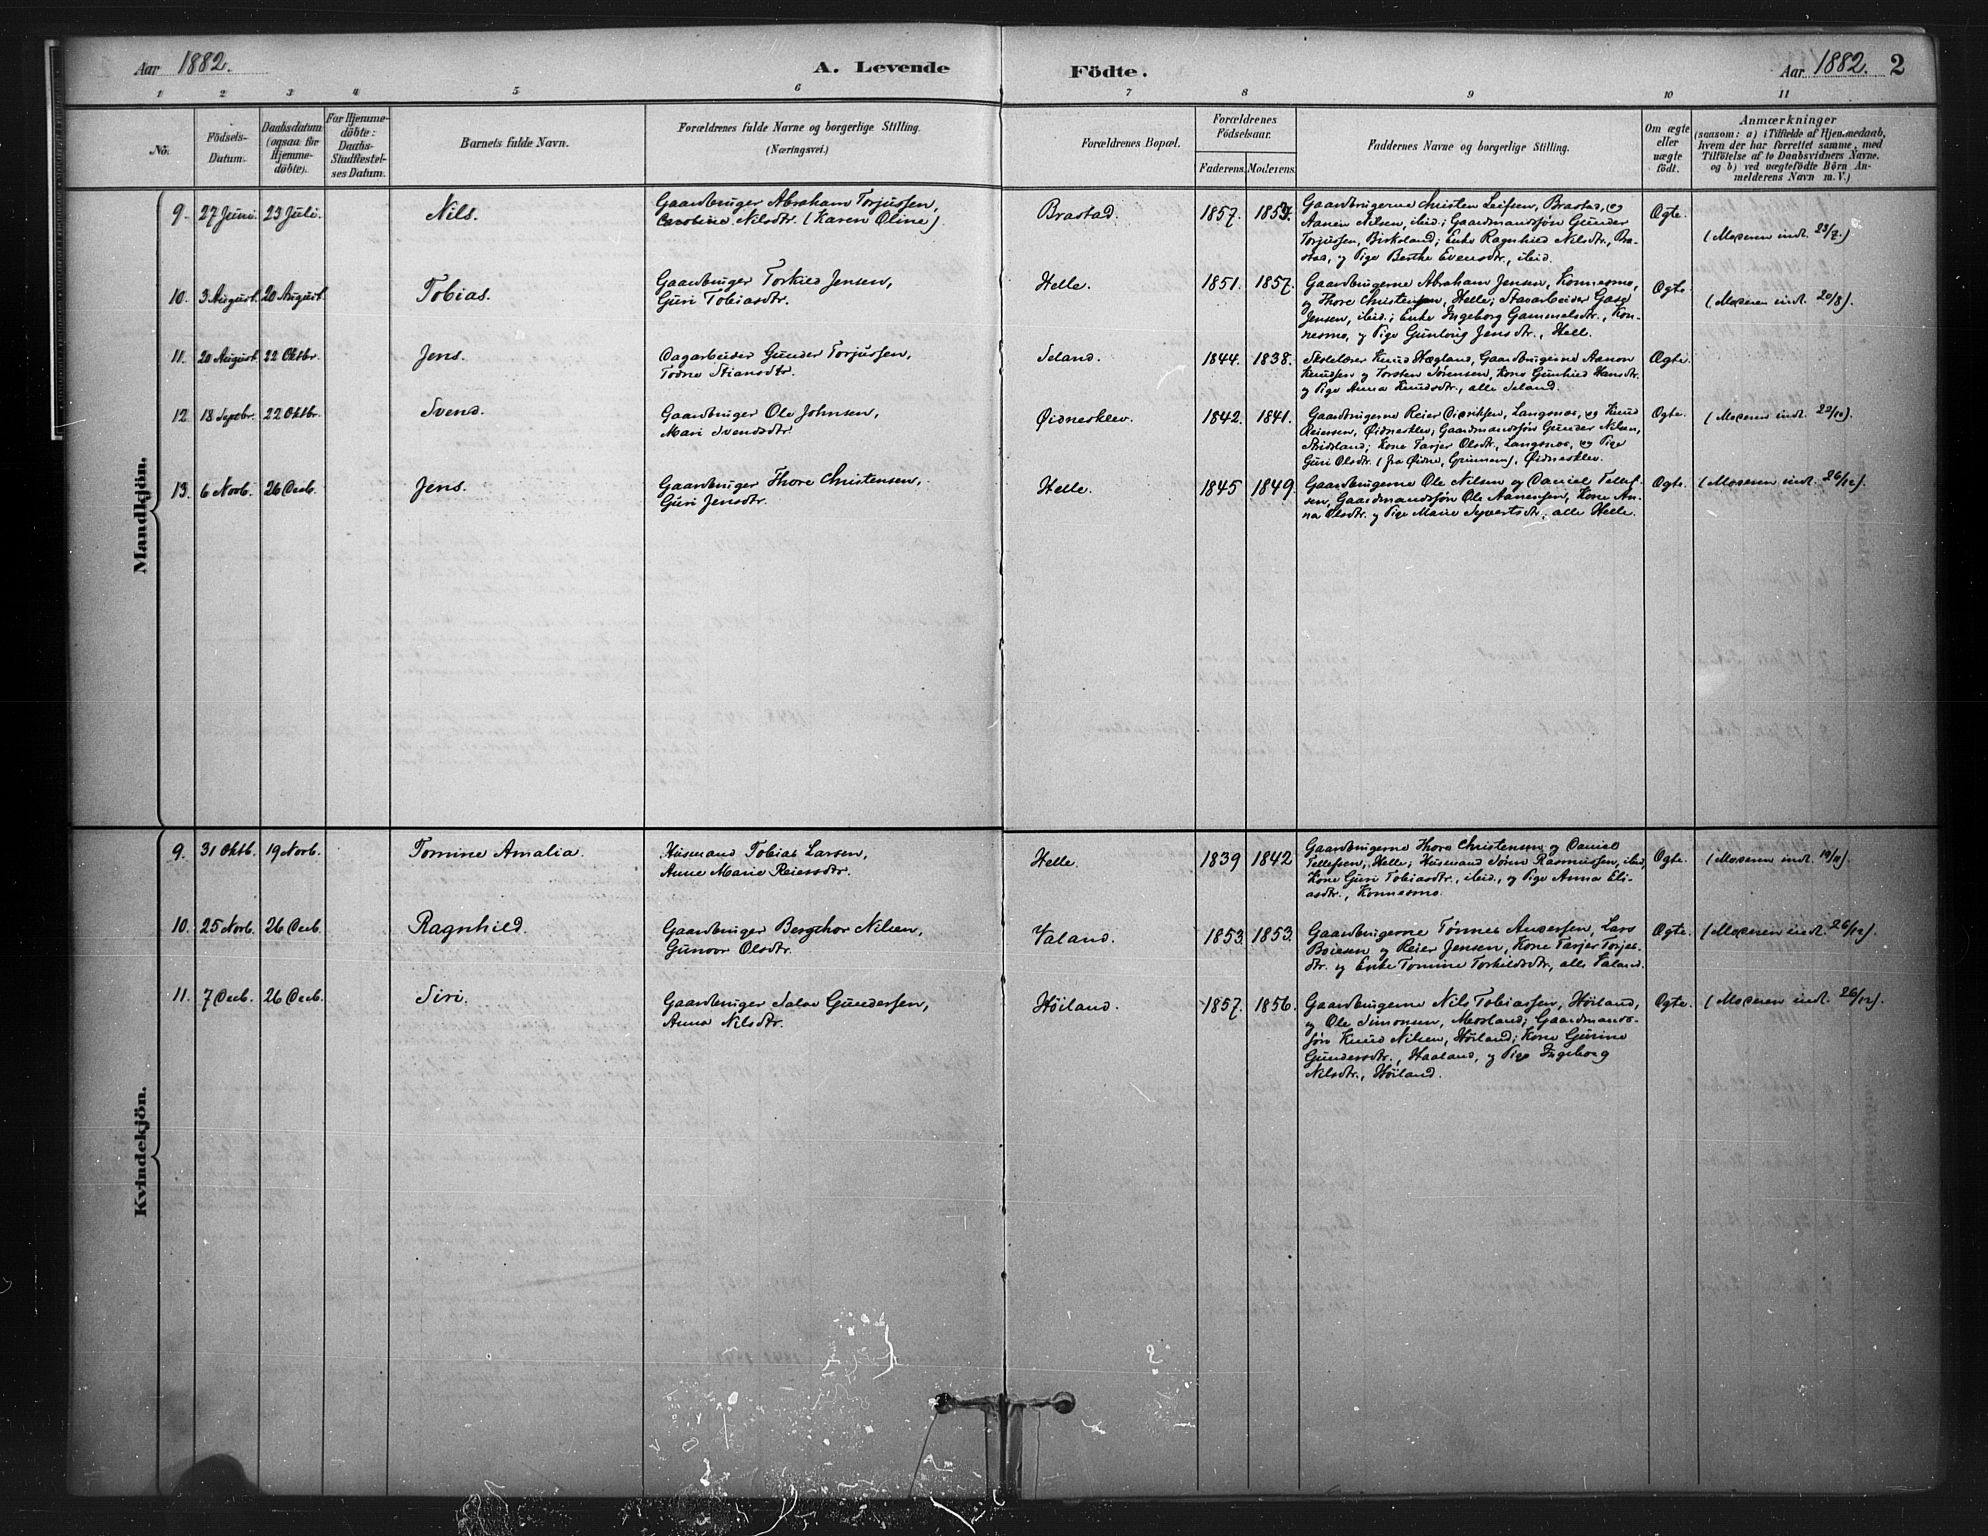 Aar 1882.
A. Levende Födte.
Aar 1882. 2
1 2 3 4 5 6 7 8 9 10 11
No.
Födsels-
Datum.
Daabsdatum
(ogsaa for
Hjemme-
döbte).
For Hjemme-
döbte:
Daabs-
Stadfæstel-
ses Datum.
Barnets fulde Navn.
Forældrenes fulde Navne og borgerlige Stilling.
(Næringsvei.)
Forældrenes Bopæl.
Forældrenes
Födselsaar.
Faderens. Moderens.
Faddernes Navne og borgerlige Stilling.
Om ægte
eller
uægte
født.
Anmærkninger
(saasom: a) i Tilfælde af Hjemmedaab,
hvem der har forrettet samme, med
Tilföielse af to Daabsvidners Navne,
og b) ved uægtefödte Börn An-
melderens Navn m. V.)
Mandkjön.
9. 27 Juni. 23 Juli. Nils.
Gaardbruger Abraham Torjussen,
Caroline Nilsdtr. (Karen Oline)
Brastad. 1857. 1859.
Gaardbrugerne Christen Leifsen, Brastad, og
Aanen Nilsen, ibid.; Gaardmandssøn Gunder
Torjussen, Birkeland; Enke Ragnhild Nilsdtr., Bra-
stad, og Pige Berthe Evensdtr., ibid.
Ægte. (Moderen indl. 23/7)
10. 3 August. 20 August. Tobias.
Gaardbruger Torkild Jensen,
Guri Tobiasdtr.
Helle. 1851. 1857.
Gaardbrugerne Abraham Jensen, Konnesmo,
og Thore Christensen, Helle;
Jensen, ibid.; Enke Ingeborg Gammelsdtr., Kon-
nesmo, og Pige Gunlaug Jensdtr., Hell.
Ægte. (Moderen indl. 20/8).
11. 20 August. 22 Oktbr. Jens.
Dagarbeider Gunder Torjussen,
Todne Stiansdtr.
Seland. 1844. 1838.
Skolelærer Knud Hægland, Gaardbrugerne Aanon
Knudsen og Torsten Sørensen, Kone Gunhild Hansdtr.
og Pige Anna Knudsdtr., alle Seland.
Ægte.
12. 18 Septbr. 22 Oktbr. Svend.
Gaardbruger Ole Johnsen,
Mari Svendsdtr.
Øidnesklev. 1842. 1841.
Gaardbrugerne Reier Didriksen, Langenes, og Knud
Reiersen, Øidnesklev; Gaardmandssøn Gunder Nilsen,
Stridsland; Kone Tarjer Olsdtr., Langenes, og Pige
Guri Olsdtr. (fra Øidne, Grinnem), Øidnesklev.
Ægte. (Moderen indl. 22/10).
13. 6 Novb. 26 Decb. Jens.
Gaardbruger Thore Christensen,
Guri Jensdtr.
Helle. 1845 1849.
Gaardbrugerne Ole Nilsen og Daniel Tellef-
sen, Gaardmandssøn Ole Aanensen, Kone An-
na Olsdtr. og Pige Marie Syvertsdtr., alle Helle.
Ægte. (Moderen indl. 26/12).
Kvindekjön.
9. 31 Oktb. 19 Novb. Tomine Amalia.
Husmand Tobias Larsen,
Anne Marie Reiersdtr.
Helle. 1839 1842
Gaardbrugerne Thore Christensen og Daniel
Tellefsen, Helle; Husmand Sørn Rasmussen, ibid.,
Kone Guri Tobiasdtr., ibid., og Pige Anna Eli-
asdtr., Konnesmo.
Ægte. (Moderen indl. 19/11).
10. 25 Novb. 26 Decb. Ragnhild.
Gaardbruger Bergthor Nilsen,
Gunvor Olsdtr.
Valand. 1853. 1853.
Gaardbrugerne Tønnes Andersen, Lars
Boiesen og Reier Jensen, Kone Tarjer Torjes-
dtr. og Enke Tomine Torkildsdtr., alle Valand.
Ægte. (Moderen indl. 26/12).
11. 7 Decb. 26 Decb. Siri.
Gaardbruger Salve Gundersen,
Anna Nilsdtr.
Høiland. 1857. 1856.
Gaardbrugerne Nils Tobiassen, Høiland,
og Ole Simonsen, Mosland; Gaardmands-
søn Knud Nilsen, Høiland; Kone Gurine
Gundersdtr., Haaland, og Pige Ingeborg
Nilsdtr., Høiland.
Ægte. (Moderen indl. 26/12).